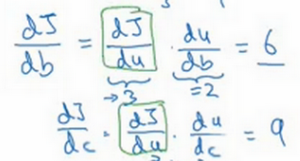 dJ/db = dJ/du · du/db = 6
→3 =2
dJ/dc = dJ/du · du/dc = 9